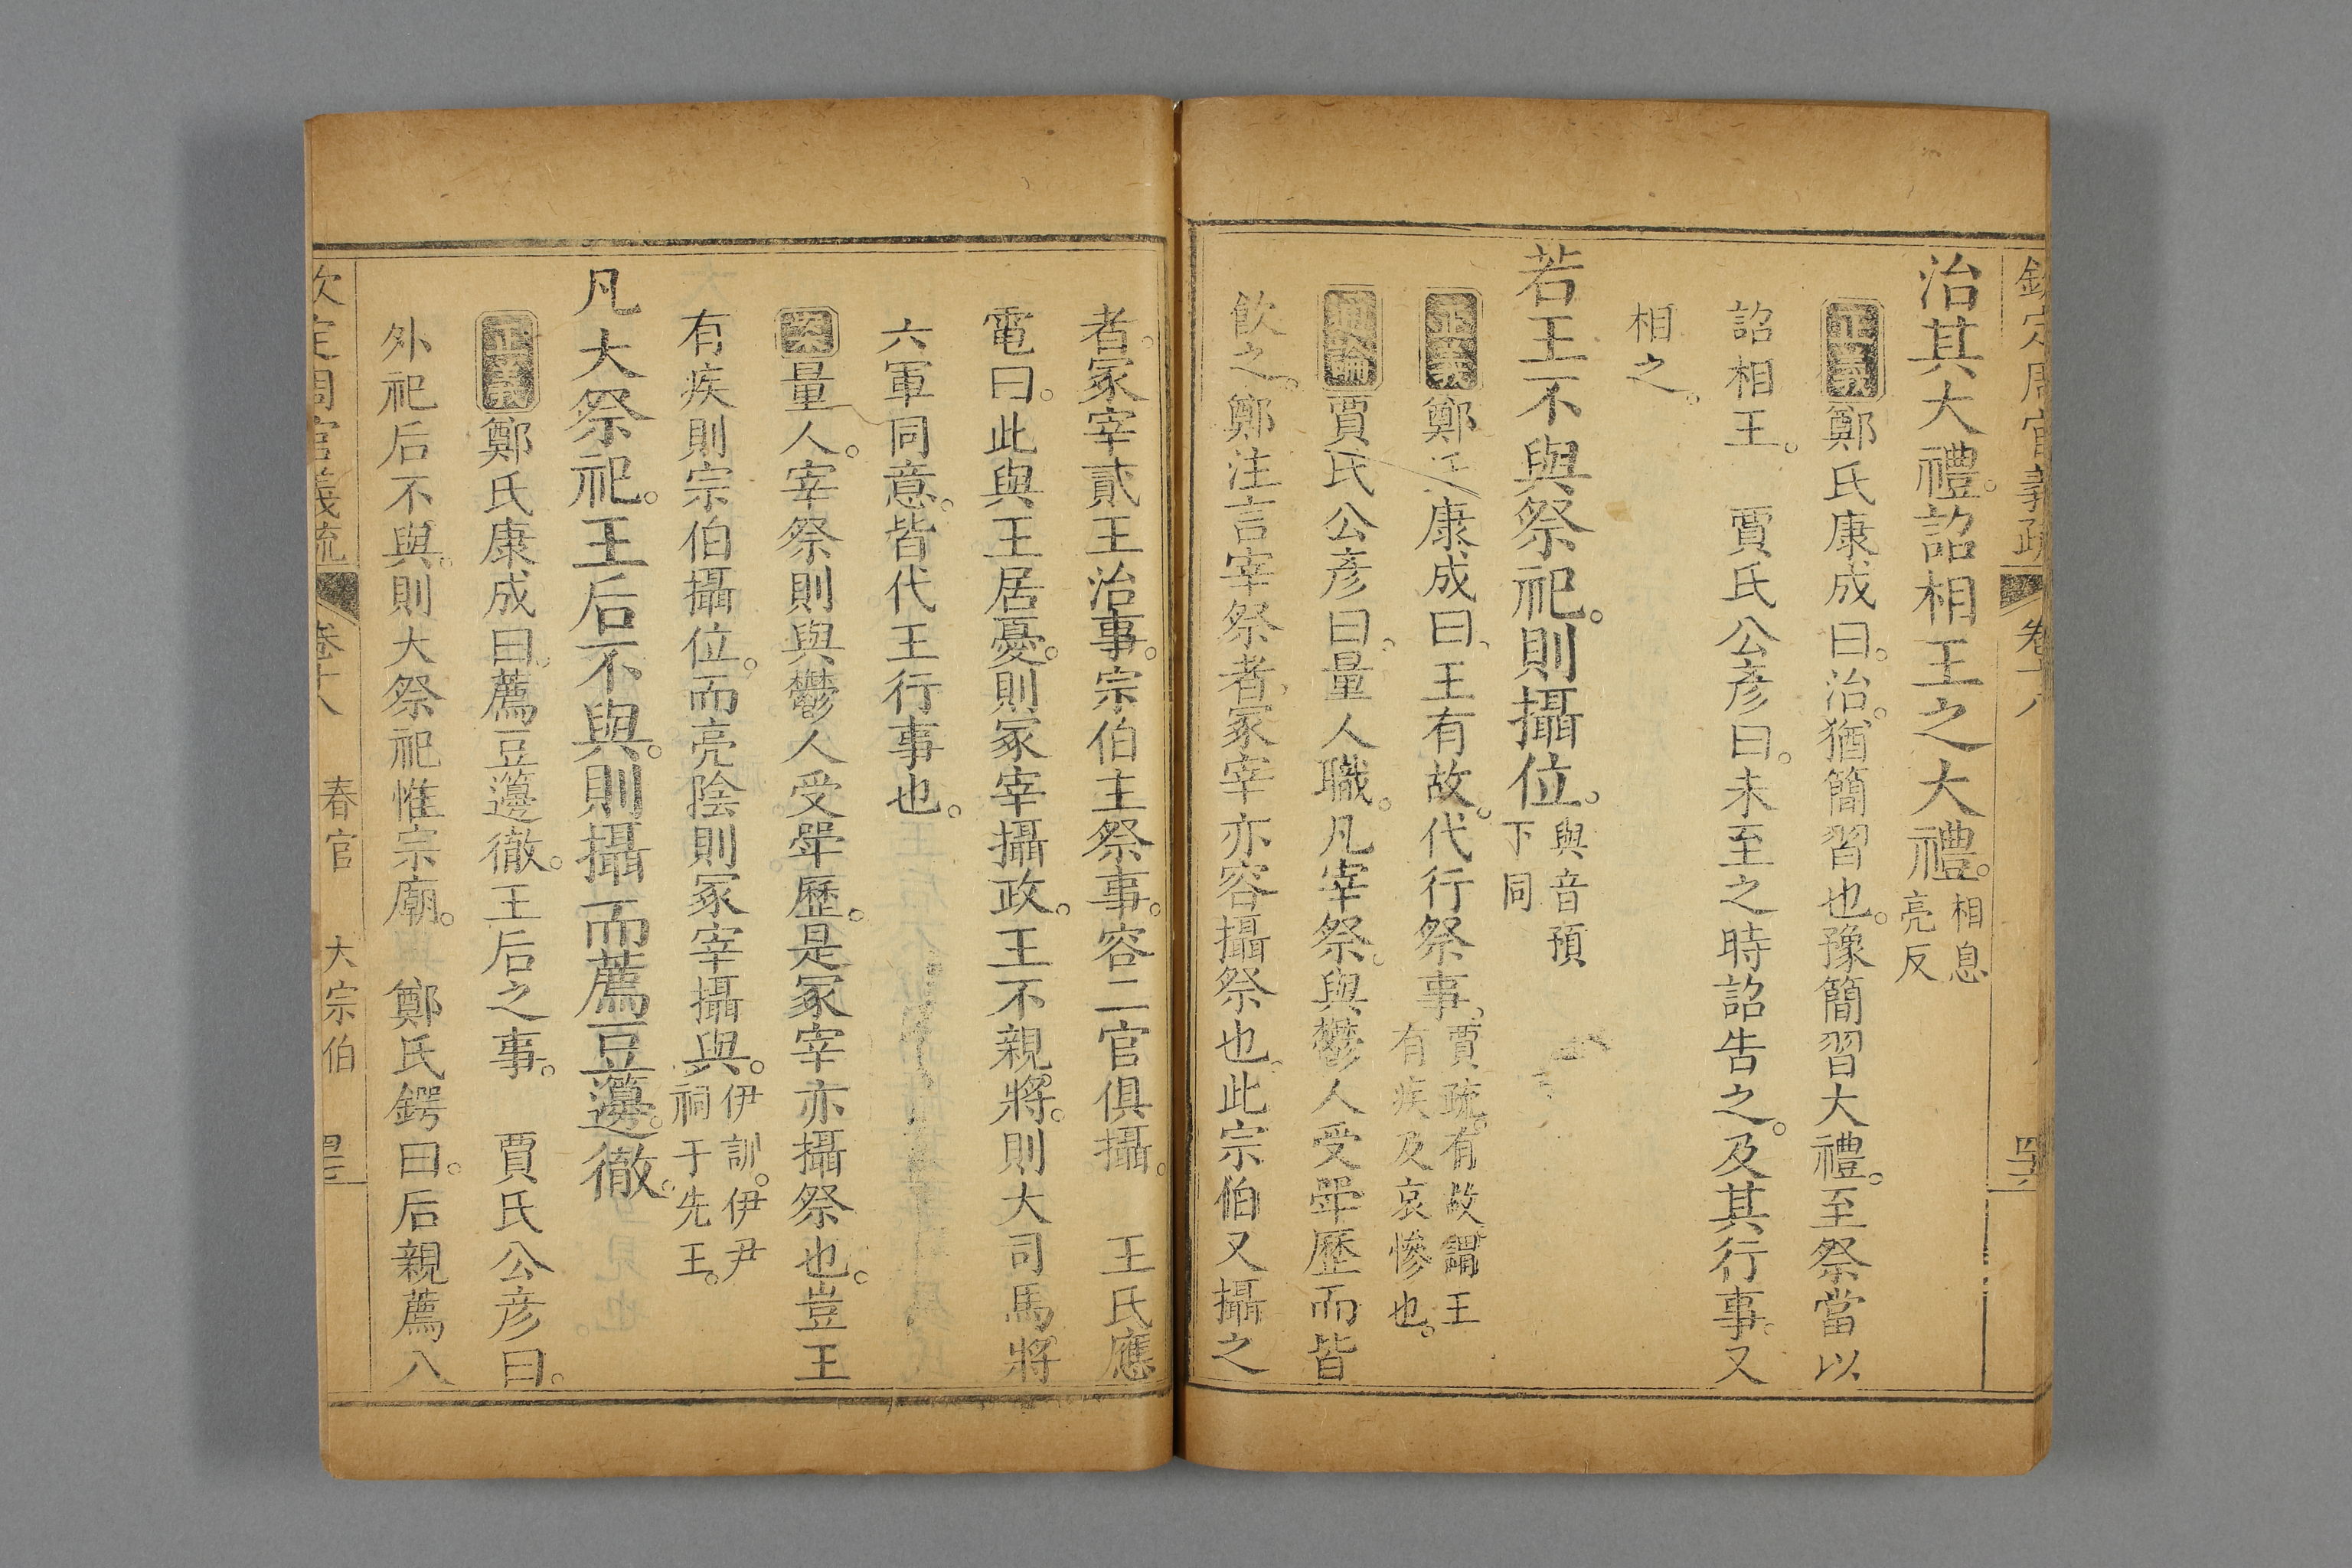 欽定周官義疏 卷十八
治其大禮。詔相王之大禮。相息亮反
正義鄭氏康成曰。治。猶簡習也。豫簡習大禮。至祭當以
詔相王。 賈氏公彥曰。未至之時詔告之。及其行事。又
相之。
若王不與祭祀。則攝位。與音預下同
正義鄭氏康成曰。王有故。代行祭事。賈疏。有故。謂王有疾及哀慘也。
通論賈氏公彥曰。量人職。凡宰祭。與鬱人受斝歷而皆
飲之。鄭注言宰祭者。冢宰亦容攝祭也。此宗伯又攝之
者。冢宰貳王治事。宗伯主祭事。容二官俱攝。 王氏應
電曰。此與王居憂。則冢宰攝政。王不親將。則大司馬將
六軍同意。皆代王行事也。
案量人。宰祭則與鬱人受斝歷。是冢宰亦攝祭也。豈王
有疾則宗伯攝位。而亮陰則冢宰攝與。伊訓。伊尹祠于先王。
凡大祭祀。王后不與。則攝而薦豆籩徹。
正義鄭氏康成曰。薦豆籩徹。王后之事。 賈氏公彥曰。
外祀后不與。則大祭祀惟宗廟。 鄭氏鍔曰。后親薦八
欽定周官義疏 卷十八 春官 大宗伯